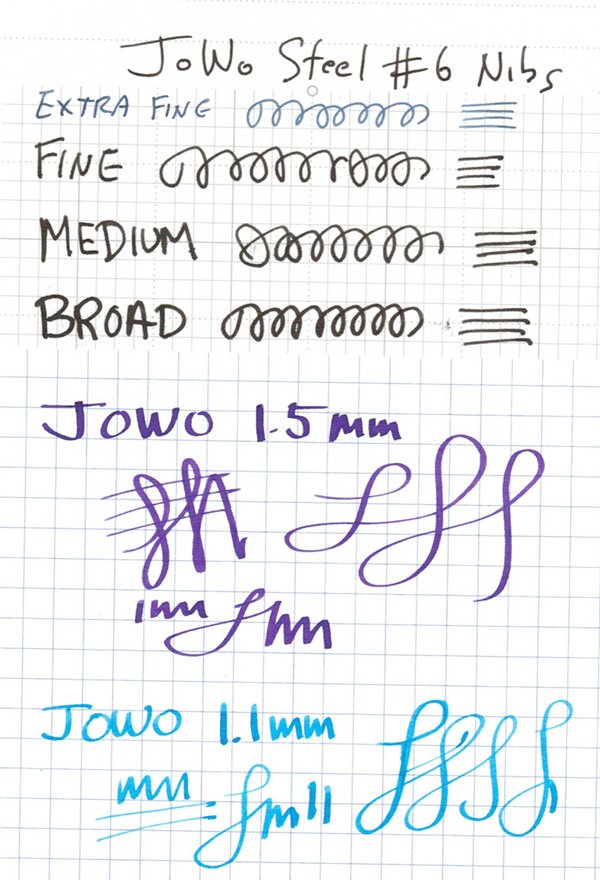 JoWo Steel #6 Nibs
EXTRA FINE
FINE
MEDIUM
BROAD
JOWO 1.5mm
JOWO 1.1mm